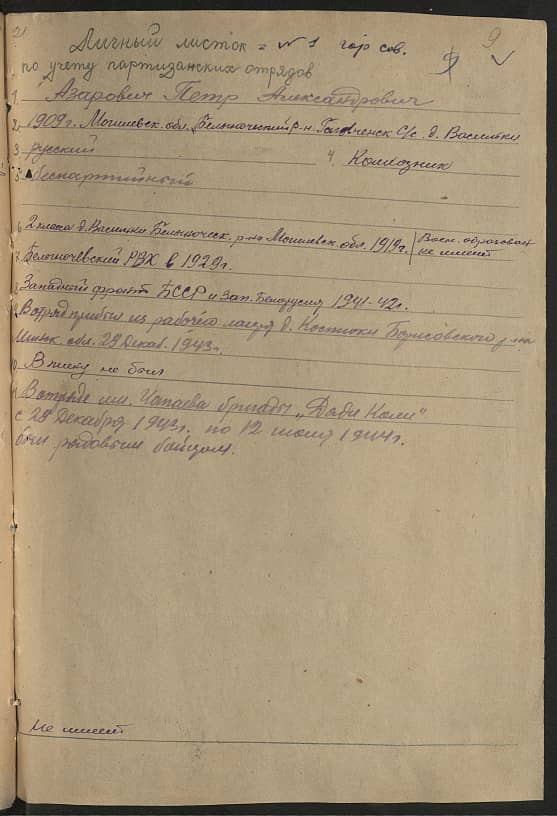 21
9
Личный листок = N 1 гор сов.
по учету партизанских отрядов
1. Азарович Петр Александрович
2. 1909 г. Могилевск. обл. Белыничский р-н С/с д. Васильки
3 русский 4. Колхозник
5 беспартийный
6 2 класса д. Васильки Белыническ. р-на Могилевск. обл. 1919 г. Воен. образован не имеет
7. Белыничевский РВК в 1929 г.
8 Западный фронт БССР и Зап. Белорусия 1941-42 г.
9 В отряд прибыл из рабочего лагеря д. Костюки Борисовского р-на
Минск. обл. 29 Декаб. 1943 г.
10 В плену не был
11 В отряде им. Чапаева бригады „Дяди Коли"
с 29 Декабря 1943 г. по 12 июля 1944 г.
был рядовым бойцом.
Не имеет